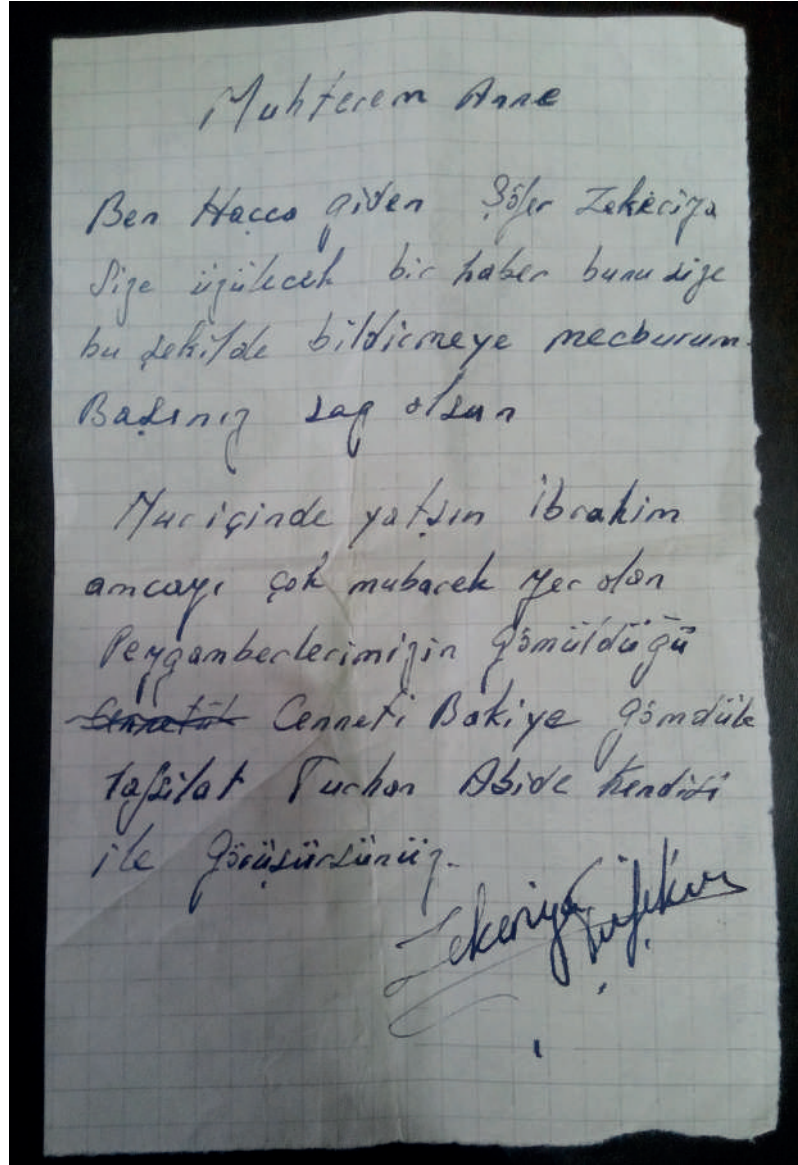 Muhterem Anne
Ben Hacca giden Şöfer Zekeriya
Size üzülecek bir haber bunu size
bu şekilde bildirmeye mecburum.
Başınız sag olsun
Nur içinde yatsın İbrahim
amcayı çok mubarek yer olan
Peygamberlerimizin gömüldüğü
Cennetül Cenneti Bakiye gömdük
tafsilat Turhan Abide kendisi
ile görüşürsünüz.
Zekeriya